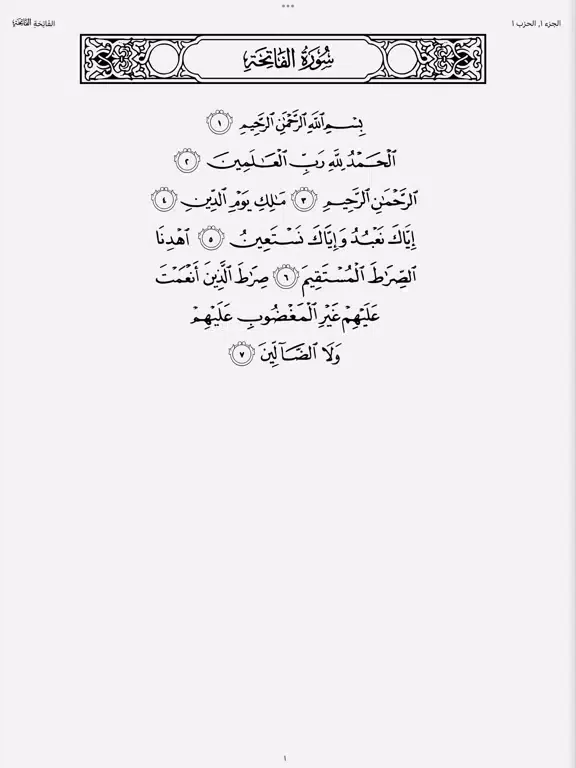 الجزء ١, الحزب ١
الفَاتِحَةِ
سُورَةُ الفَاتِحَةِ
بِسۡمِ ٱللَّهِ ٱلرَّحۡمَٰنِ ٱلرَّحِيمِ ١
ٱلۡحَمۡدُ لِلَّهِ رَبِّ ٱلۡعَٰلَمِينَ ٢
ٱلرَّحۡمَٰنِ ٱلرَّحِيمِ ٣ مَٰلِكِ يَوۡمِ ٱلدِّينِ ٤
إِيَّاكَ نَعۡبُدُ وَإِيَّاكَ نَسۡتَعِينُ ٥ ٱهۡدِنَا
ٱلصِّرَٰطَ ٱلۡمُسۡتَقِيمَ ٦ صِرَٰطَ ٱلَّذِينَ أَنۡعَمۡتَ
عَلَيۡهِمۡ غَيۡرِ ٱلۡمَغۡضُوبِ عَلَيۡهِمۡ
وَلَا ٱلضَّآلِّينَ ٧
١